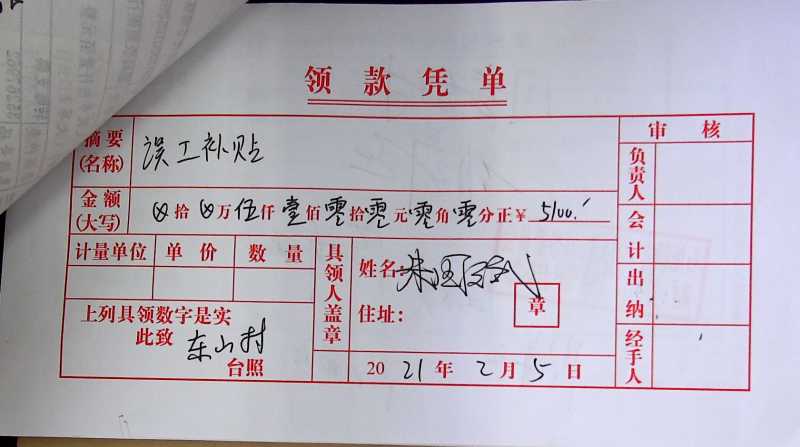 领款凭单
摘要(名称) 误工补贴
审核
金额(大写) ⊗拾⊗万伍仟壹佰零拾零元零角零分正¥ 5100.
负责人
会计
计量单位 单价 数量
具领人盖章
姓名:
住址:
章
出纳
上列具领数字是实
此致 东山村
台照
2021年2月5日
经手人